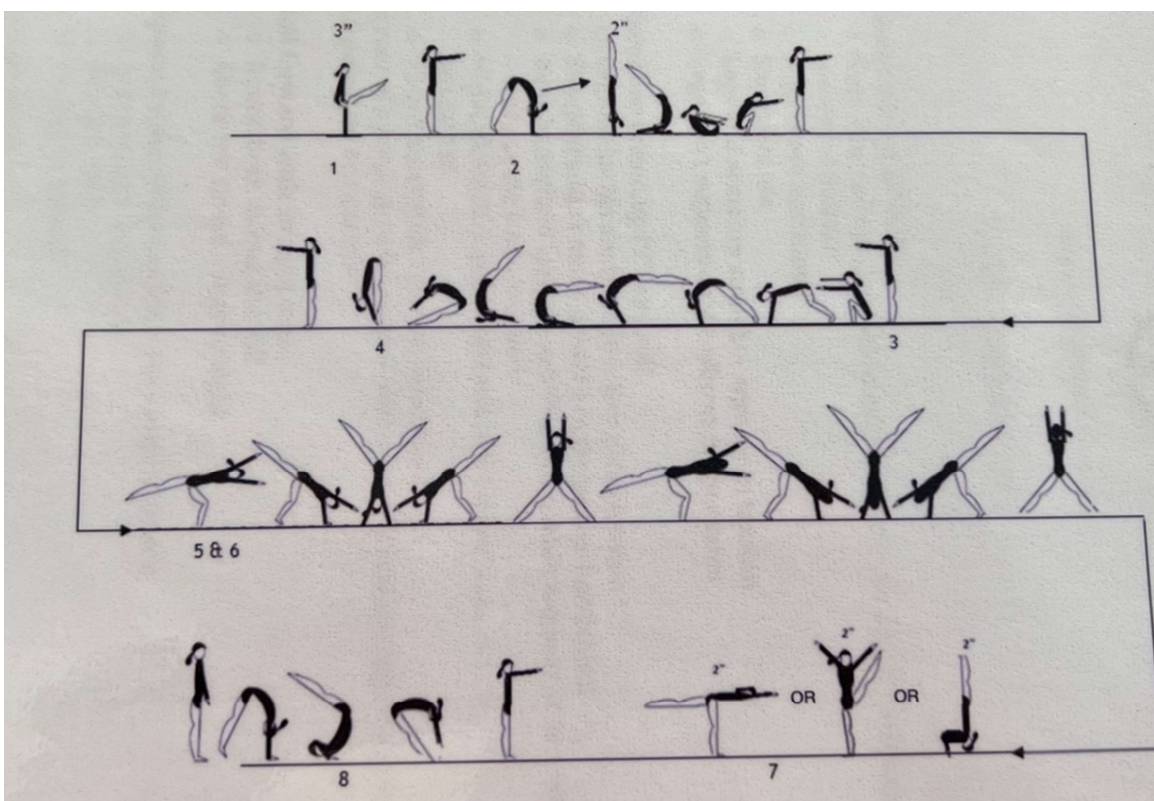 3” 2"
1 2
4 3
5 & 6
2" OR 2" OR 2"
8 7